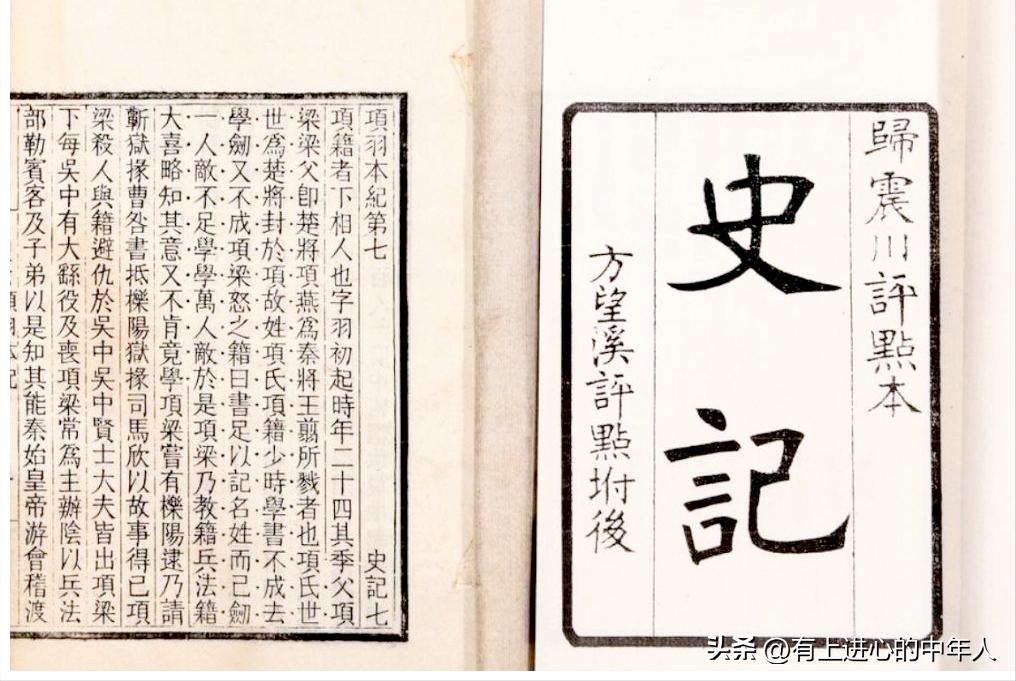 歸震川評點本
史記
方望溪評點坿後
項羽本紀第七 史記七
項籍者下相人也字羽初起時年二十四其季父項
梁梁父卽楚將項燕爲秦將王翦所戮者也項氏世
世爲楚將封於項故姓項氏項籍少時學書不成去
學劒又不成項梁怒之籍曰書足以記名姓而已劒
一人敵不足學學萬人敵於是項梁乃教籍兵法籍
大喜略知其意又不肯竟學項梁嘗有櫟陽逮乃請
蘄獄掾曹咎書抵櫟陽獄掾司馬欣以故事得已項
梁殺人與籍避仇於吳中吳中賢士大夫皆出項梁
下每吳中有大繇役及喪項梁常爲主辦陰以兵法
部勒賓客及子弟以是知其能秦始皇帝游會稽渡
头条 @有上进心的中年人